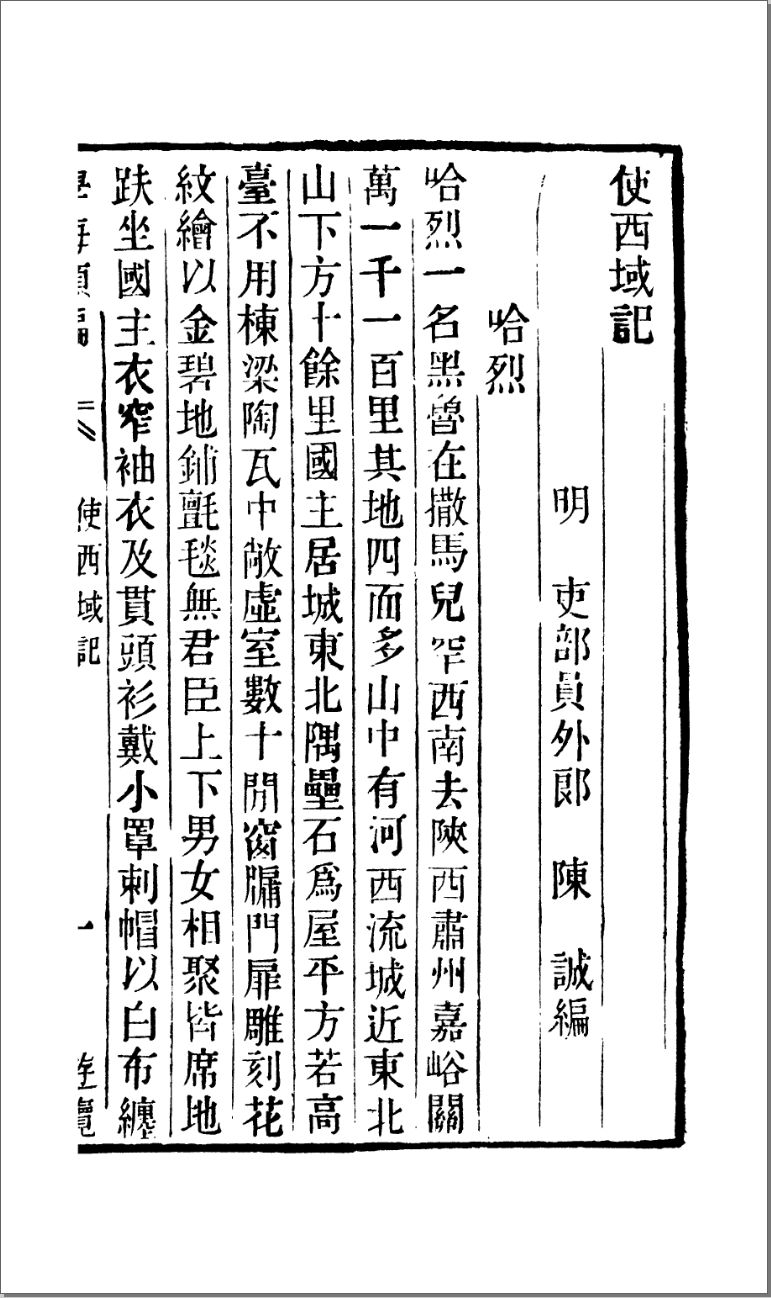 使西域記
明 吏部員外郎 陳 誠編
哈烈
哈烈一名黑魯在撒馬兒罕西南去陝西肅州嘉峪關
萬一千一百里其地四面多山中有河西流城近東北
山下方十餘里國主居城東北隅壘石爲屋平方若高
臺不用棟梁陶瓦中敞虛室數十閒窗牖門扉雕刻花
紋繪以金碧地鋪氊毯無君臣上下男女相聚皆席地
趺坐國主衣窄袖衣及貫頭衫戴小罩剌帽以白布纏
學海類編 使西域記 一 遊覽